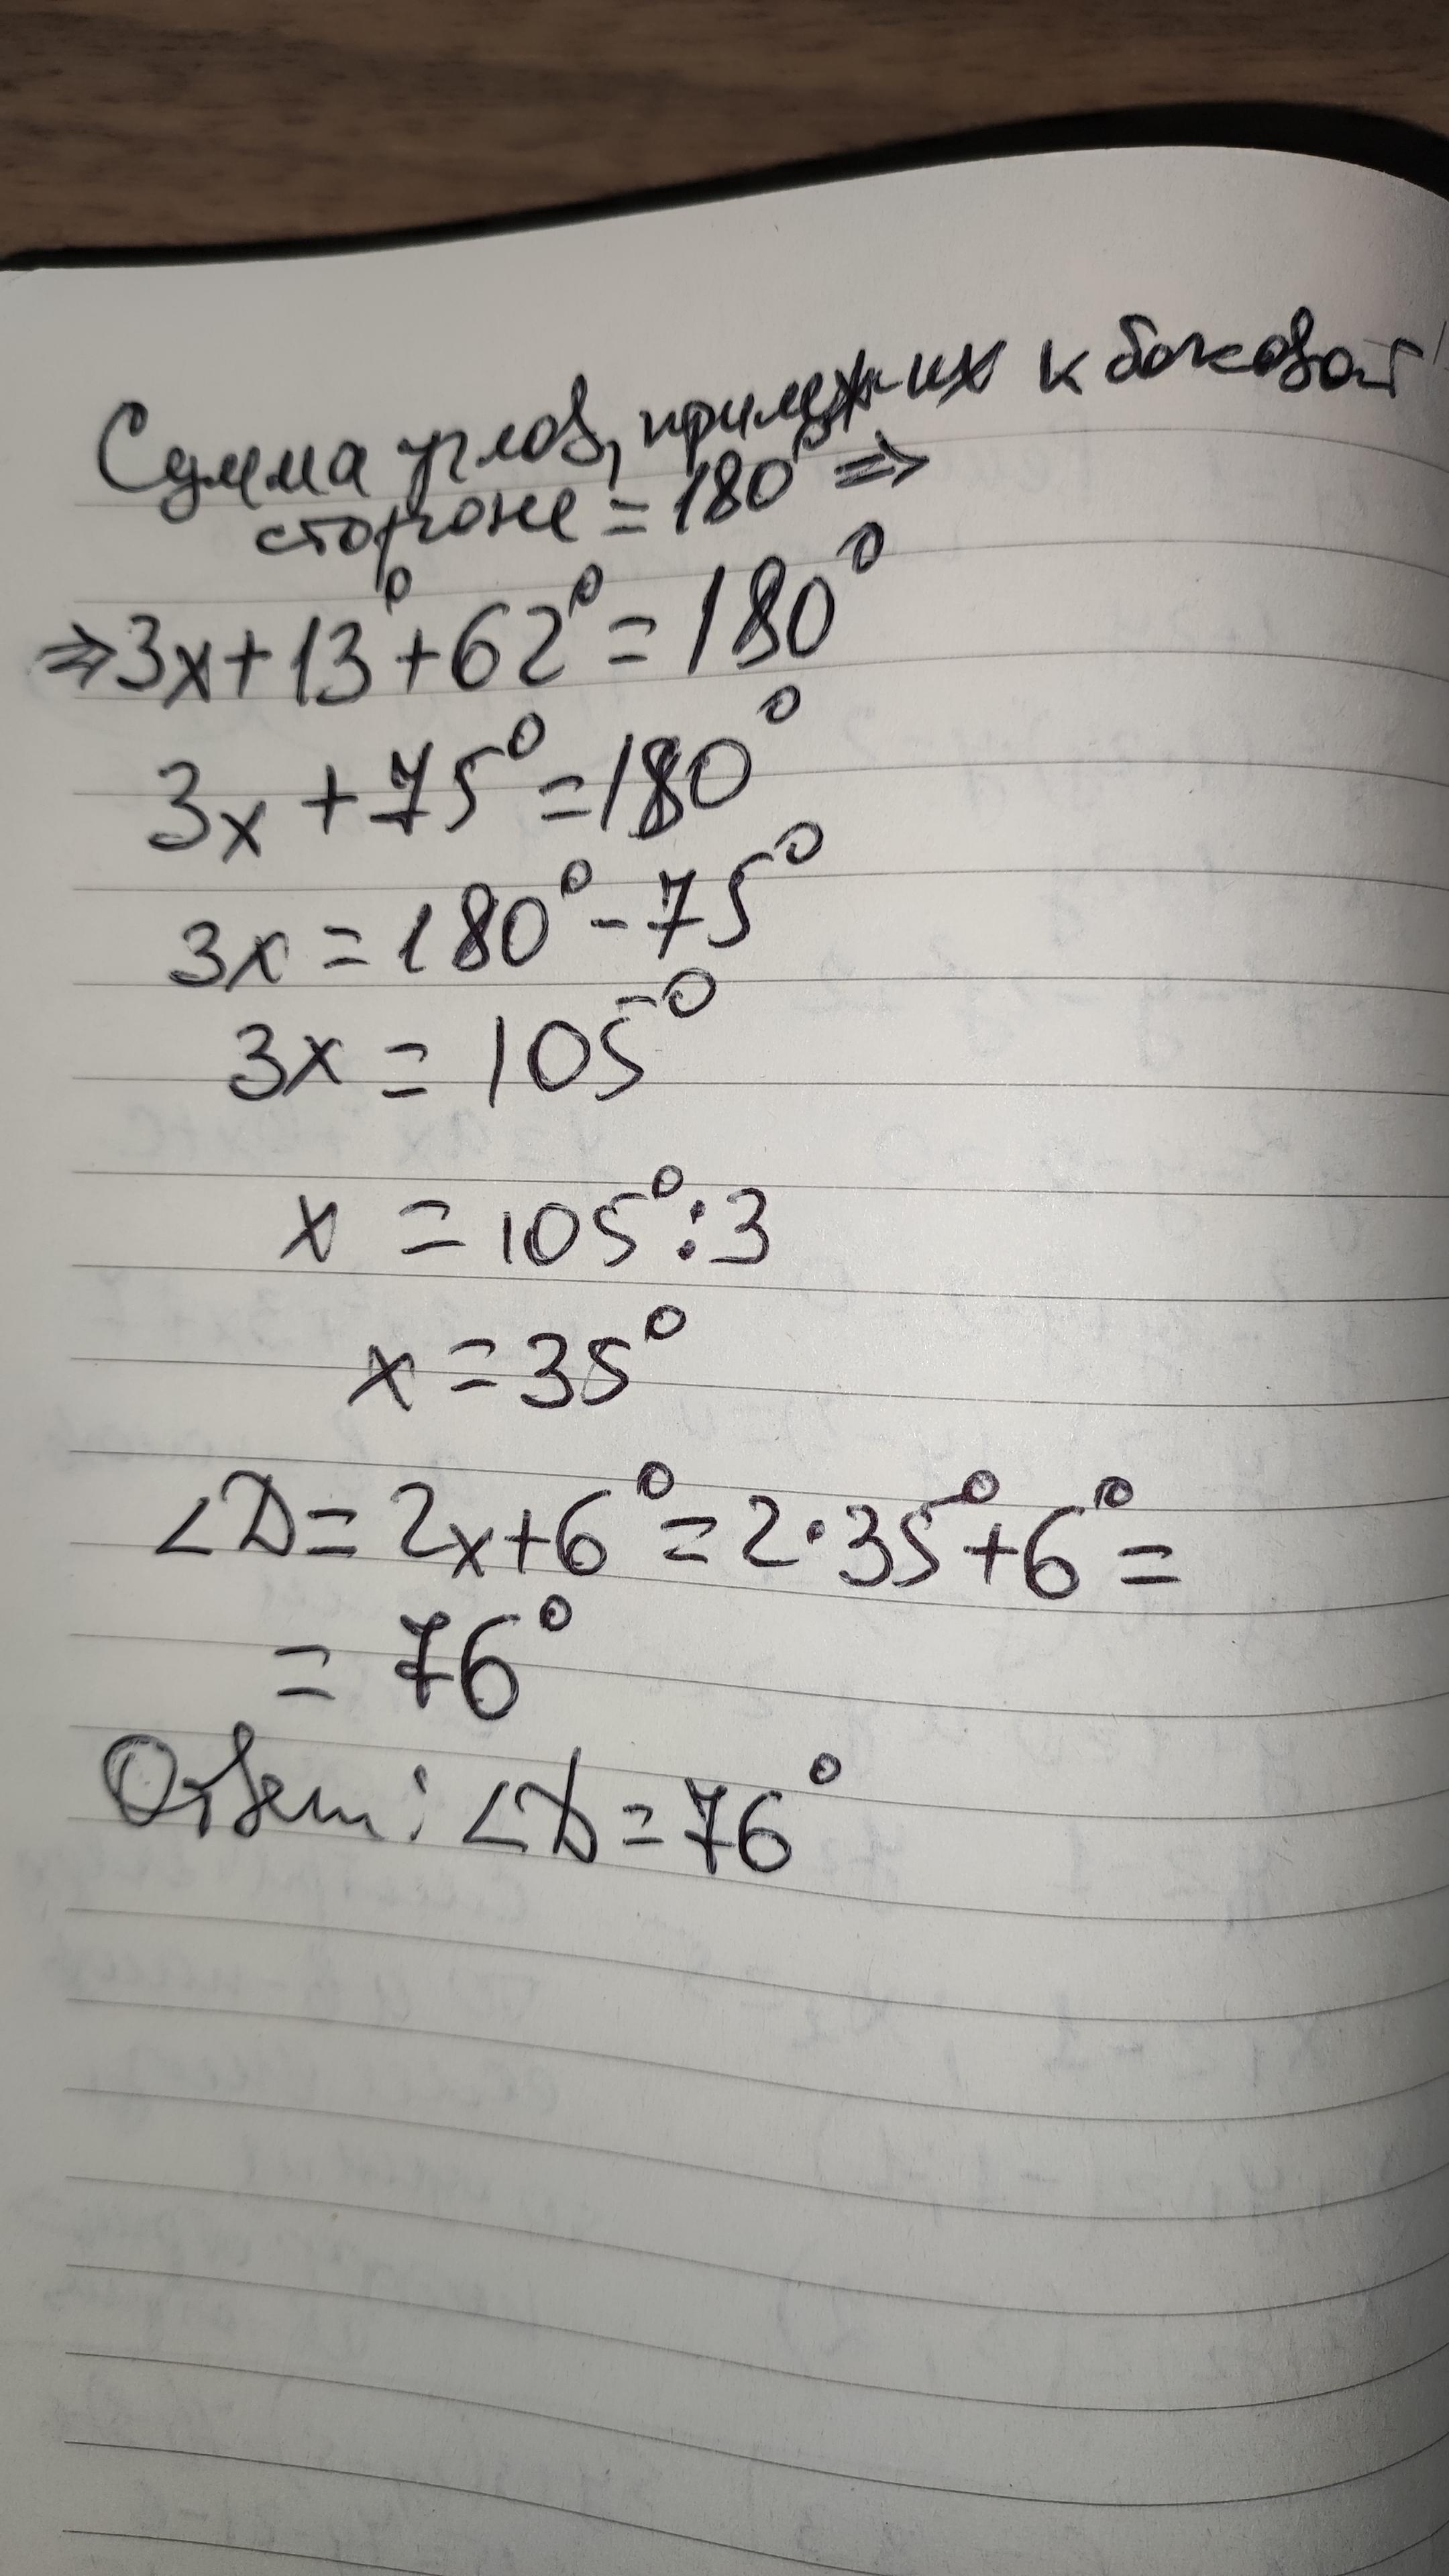 Сумма углов, прилежих к боковой
стороне = 180° ⇒
⇒ 3x + 13° + 62° = 180°
3x + 75° = 180°
3x = 180° - 75°
3x = 105°
x = 105° : 3
x = 35°
∠D = 2x + 6° = 2 · 35° + 6° =
= 76°
Ответ: ∠D = 76°